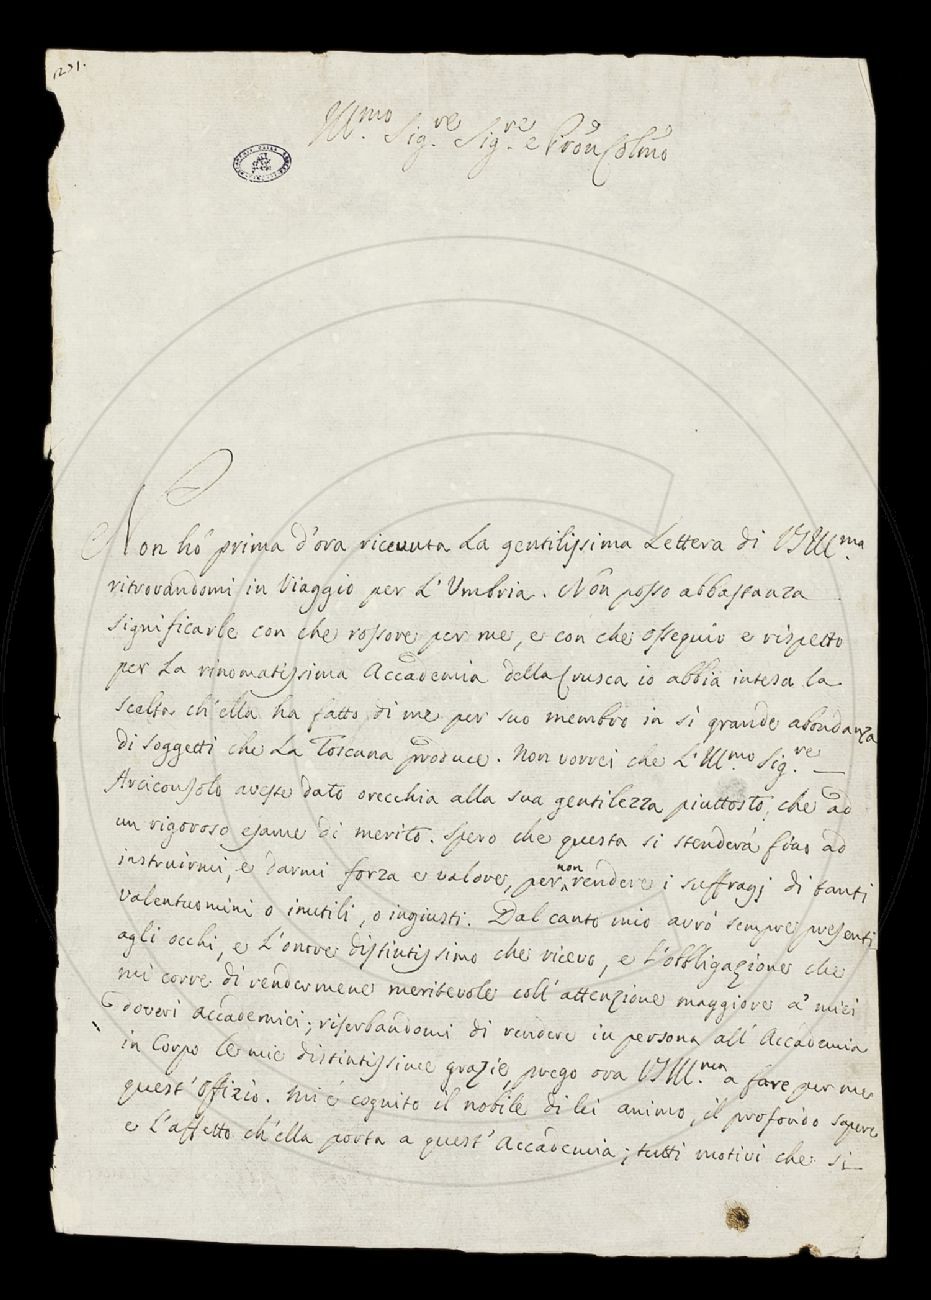 1231.
Ill.mo Sig.re Sig.re e Pron Colmo
Non hó prima d'ora ricevuta la gentilissima Lettera di VSIll.ma
ritrovandomi in Viaggio per L'Umbria. Non posso abbastanza
significarle con che rossore per me, e con che ossequio e rispetto
per La rinomatissima Accademia della Crusca io abbia intesa la
scelta ch'ella ha fatto di me per suo membro in sì grande abondanza
di soggetti che La Toscana produce. Non vorrei che L'Ill.mo Sig.re
Arciconsolo avesse dato orecchia alla sua gentilezza piuttosto, che ad
un rigoroso esame di merito. Spero che questa si stenderá fino ad
instruirmi, e darmi forza e valore, per non rendere i suffragj di tanti
valentuomini o inutili, o ingiusti. Dal canto mio avró sempre presenti
agli occhi, e L'onore distintissimo che ricevo, e L'obbligazione che
mi corre di rendermene meritevole coll'attenzione maggiore a' miei
doveri accademici; riserbandomi di rendere in persona all'Accademia
in Corpo le mie distintissime grazie, prego ora VSIll.ma a fare per me
quest'Offizio. Mi é cognito il nobile di lei animo, il profondo sapere
e L'affetto ch'ella porta a quest'Accademia; tutti motivi che si